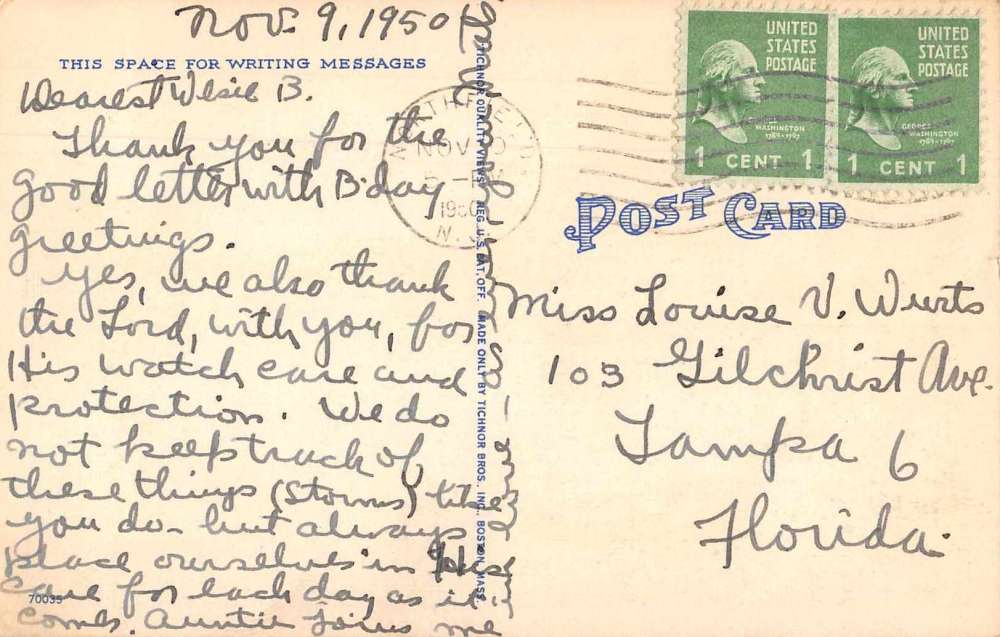 Nov. 9, 1950
THIS SPACE FOR WRITING MESSAGES
Dearest Elsie B.
Thank you for the
good letter with B-day
greetings.
Yes, we also thank
the Lord, with you, for
His watch care and
protection. We do
not keep track of
these things (storms) like
you do - but always
place ourselves in His
care for each day as it
comes. Auntie joins me
70035
TICHNOR QUALITY VIEWS, REG. U. S. PAT. OFF. MADE ONLY BY TICHNOR BROS. INC., BOSTON, MASS.
NOV
1950
N. J.
UNITED
STATES
POSTAGE
GEORGE
WASHINGTON
1789-1797
1 CENT 1
UNITED
STATES
POSTAGE
GEORGE
WASHINGTON
1789-1797
1 CENT 1
POST CARD
Miss Louise V. Wurts
103 Gilchrist Ave.
Tampa 6
Florida.